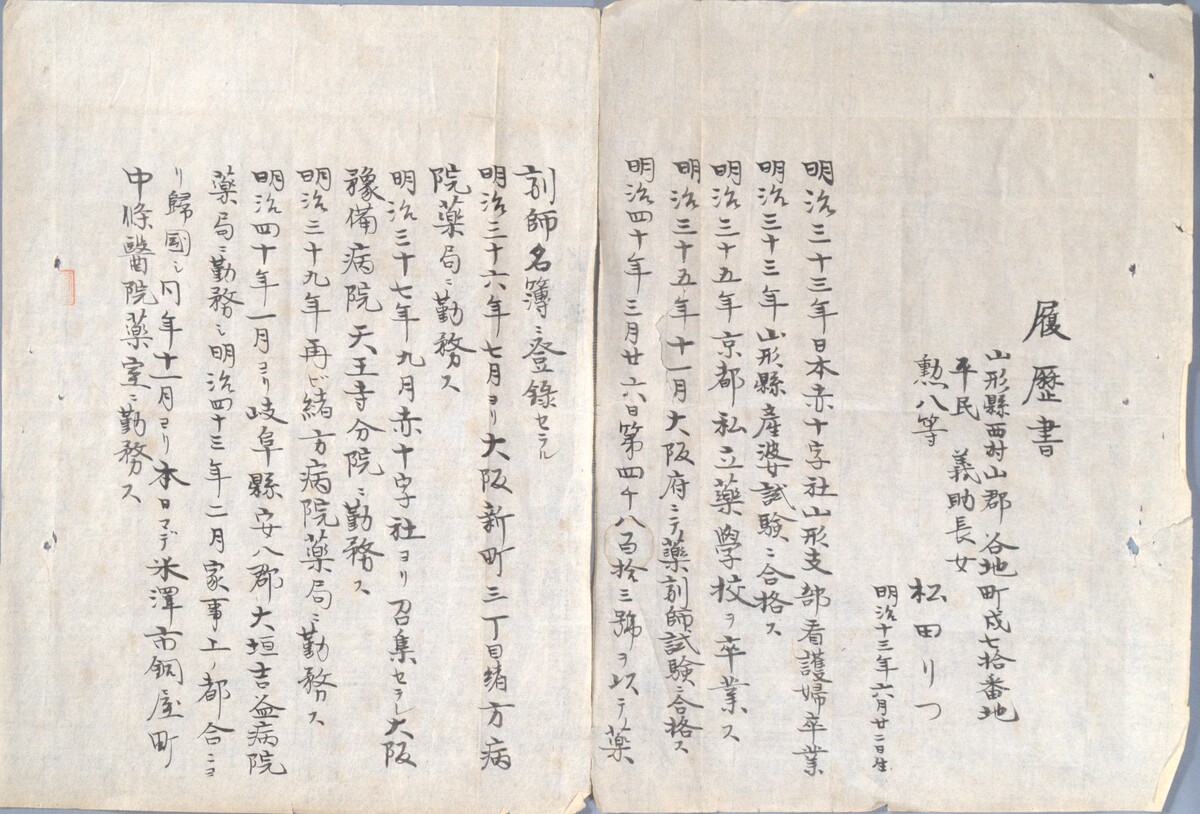 履歴書
山形縣西村山郡谷地町戊七拾番地
平民　義助長女
勲八等
松田りつ
明治十三年六月廿二日生
明治三十三年日本赤十字社山形支部看護婦卒業
明治三十三年山形縣産婆試験ニ合格ス
明治三十五年京都私立薬學校ヲ卒業ス
明治三十五年十一月大阪府ニテ薬剤師試験ニ合格ス
明治四十年三月廿六日第四千八百拾三號ヲ以テ薬
剤師名簿ニ登録セラル
明治三十六年七月ヨリ大阪新町三丁目緒方病
院薬局ニ勤務ス
明治三十七年九月赤十字社ヨリ召集セラレ大阪
豫備病院天王寺分院ニ勤務ス
明治三十九年再ビ緒方病院薬局ニ勤務ス
明治四十年一月ヨリ岐阜縣安八郡大垣吉益病院
薬局ニ勤務シ明治四十三年二月家事上ノ都合ニヨ
リ歸国シ同年十一月ヨリ本日マデ米澤市銅屋町
中條醫院薬室ニ勤務ス